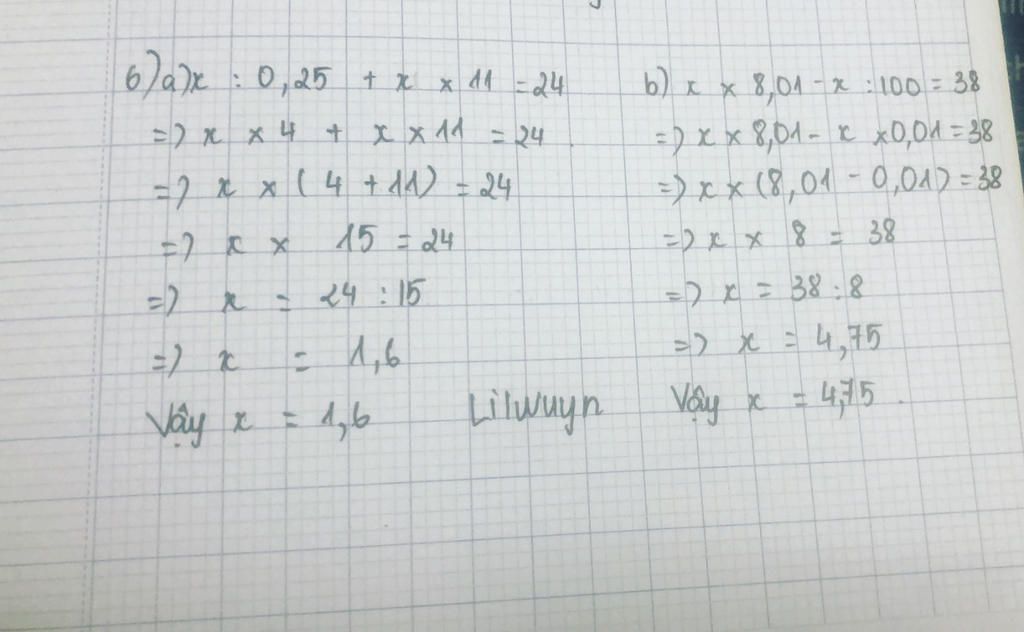 6) a) x : 0,25 + x × 11 = 24
=) x × 4 + x × 11 = 24
=) x × ( 4 + 11) = 24
=) x × 15 = 24
=) x = 24 : 15
=) x = 1,6
Vậy x = 1,6
Lilwuyn
b) x × 8,01 - x : 100 = 38
=) x × 8,01 - x × 0,01 = 38
=) x × (8,01 - 0,01) = 38
=) x × 8 = 38
=) x = 38 : 8
=) x = 4,75
Vậy x = 4,75.